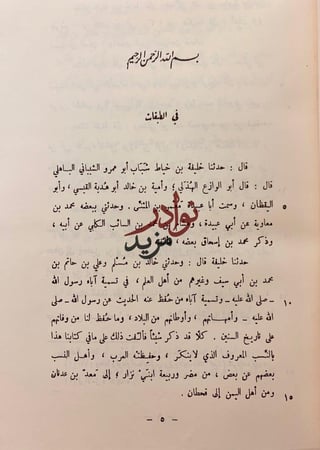 بسم الله الرحمن الرحيم
في الطبقات
قال : حدثنا خليفة بن خياط شباب أبو عمرو الشيباني الباهلي
قال : قال أبو الوازع الهذلي ؛ وأمية بن خالد أبو هدبة القيسي ، وأبو
اليقظان ، وسمعت أبا عبيدة معمر بن المثنى . وحدثني ببعضه محمد بن ٥
معاوية عن أبي عبيدة ، بن السائب الكلبي عن أبيه ،
وذكر محمد بن إسحاق بعضه ،
نوادر
مزيد
حدثنا خليفة قال : وحدثني خالد بن مسلم وعلي بن حاتم بن
محمد بن أبي سيف وغيرهم من أهل العلم ، في تسمية آباء رسول الله
ـ صلى الله عليه ـ وتسمية آباء من حفظ عنه الحديث عن رسول الله ـ صلى ١٠
الله عليه ـ وأمهاتهم ، وأوطانهم من البلاد ، وما حفظ لنا من وفاتهم
على تاريخ السنين . كلا قد ذكر شيئا فألفت ذلك على ما في كتابنا هذا
بالنسب المعروف الذي لا يتنكر ، وحفيظته العرب ، وأهل النسب
بعضهم عن بعض ، من مضر وربيعة ابني نزار ؛ إلى معد بن عدنان
ومن أهل اليمن إلى قحطان . ١٥
ـ ٥ ـ